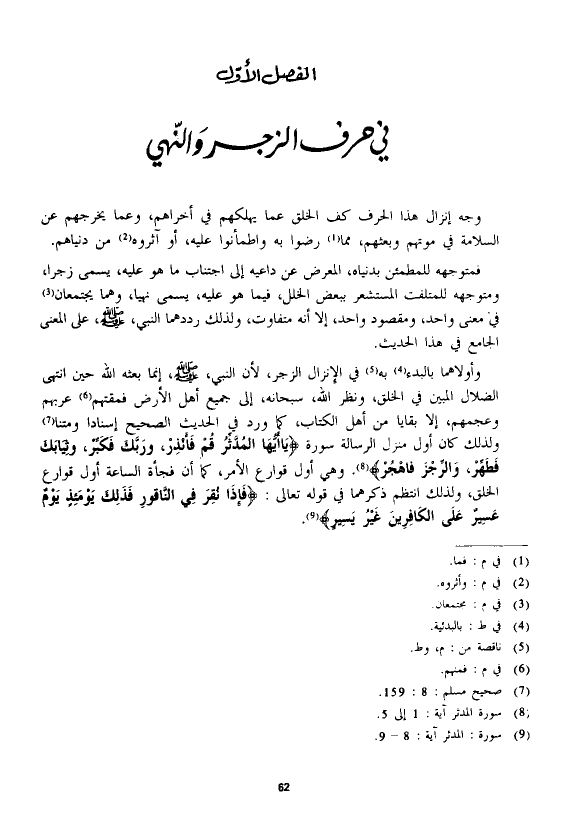 الفصل الأوّل
في حرف الزجر والنّهي
وجه إنزال هذا الحرف كف الخلق عما يهلكهم في أخراهم، وعما يخرجهم عن
السلامة في موتهم وبعثهم، مما(1) رضوا به واطمأنوا عليه، أو آثروه(2) من دنياهم.
فمتوجهه للمطمئن بدنياه، المعرض عن داعيه إلى اجتناب ما هو عليه، يسمى زجرا،
ومتوجهه للمتلفت المستشعر ببعض الخلل، فيما هو عليه، يسمى نهيا، وهما يجتمعان(3)
في معنى واحد، ومقصود واحد، إلا أنه متفاوت، ولذلك رددهما النبي، ﷺ، على المعنى
الجامع في هذا الحديث.
وأولاهما بالبدء(4) به(5) في الإنزال الزجر، لأن النبي، ﷺ، إنما بعثه الله حين انتهى
الضلال المبين في الخلق، ونظر الله، سبحانه، إلى جميع أهل الأرض فمقتهم(6) عربهم
وعجمهم، إلا بقايا من أهل الكتاب، كما ورد في الحديث الصحيح إسنادا ومتنا(7)
ولذلك كان أول منزل الرسالة سورة ﴿يَاأَيُّهَا المُدَّثِّرُ قُمْ فَأَنْذِرْ، وَرَبَّكَ فَكَبِّرْ، وَثِيَابَكَ
فَطَهِّرْ، وَالرِّجْزَ فَاهْجُرْ﴾(8). وهي أول قوارع الأمر، كما أن فجأة الساعة أول قوارع
الخلق، ولذلك انتظم ذكرهما في قوله تعالى : ﴿فَإِذَا نُقِرَ فِي النَّاقُورِ فَذَلِكَ يَوْمَئِذٍ يَوْمٌ
عَسِيرٌ عَلَى الكَافِرِينَ غَيْرُ يَسِيرٍ﴾(9).
(1) في م : فما.
(2) في م : وأثروه.
(3) في م : مجتمعان.
(4) في ط : بالبدئية.
(5) ناقصة من : م، وط.
(6) في م : فمنهم.
(7) صحيح مسلم : 8 : 159.
(8) سورة المدثر آية : 1 إلى 5.
(9) سورة : المدثر آية : 8 – 9.
62